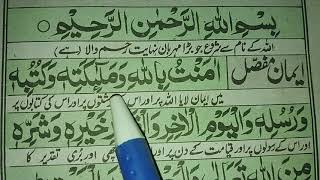 بِسْمِ اللهِ الرَّحْمٰنِ الرَّحِيْمِ
اللہ کے نام سے شروع جو بڑا مہربان نہایت رحم والا (ہے)
ایمان مفصل اٰمَنْتُ بِاللهِ وَمَلٰٓئِكَتِهٖ وَكُتُبِهٖ
میں ایمان لایا اللہ پر اور اس کے فرشتوں پر اور اس کی کتابوں پر
وَرُسُلِهٖ وَالْيَوْمِ الْاٰخِرِ وَالْقَدْرِ خَيْرِهٖ وَشَرِّهٖ
اور اس کے رسولوں پر اور قیامت کے دن پر اور اچھی اور بری تقدیر کا
مِنَ اللهِ تَعَالٰى